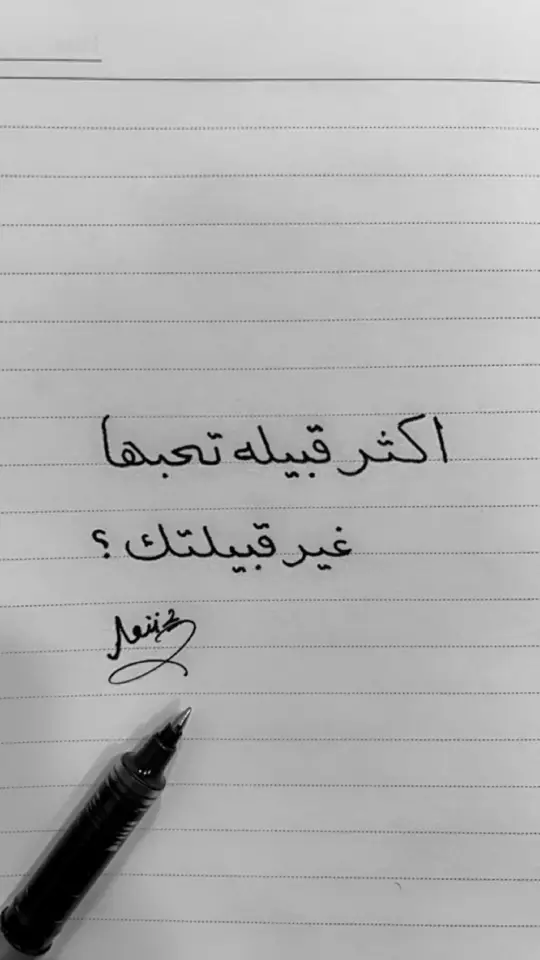 اكثر قبيله تحبها
غير قبيلتك ؟